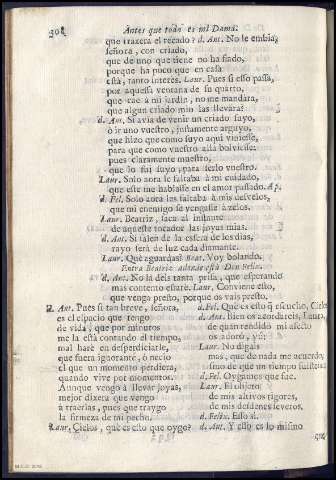 308 Antes que todo es mi Dama.
que traxera el recado? d. Ant. No le embia,
señora, con criado,
que de uno que tiene no ha fiado,
porque ha poco que en casa
està, tanto interes. Laur. Pues si esso passa,
por aquessa ventana de su quarto,
que cae à mi jardin, no me mandàra,
que algun criado mio las llevàra?
d. Ant. Si avia de venir un criado suyo,
ò ir uno vuestro, justamente arguyo,
que hizo que como suyo aqui viniesse,
para que como vuestro allà bolviesse:
pues claramente muestro,
que lo fui suyo, para serlo vuestro.
Laur. Solo aora le faltaba à mi cuidado,
que este me hablasse en el amor passado. Ap.
d. Fel. Solo aora les faltaba à mis desvelos,
que mi enemigo se vengasse à zelos.
Laur. Beatriz, saca al instante
de aquesse tocador las joyas mias.
d. Ant. Si salen de la esfera de los dias,
rayo serà de luz cada diamante.
Laur. Què aguardas? Beat. Voy bolando.
Entra Beatriz adonde està Don Felix.
d. Ant. No la deis tanta prisa, que esperando
mas contento estarè. Laur. Conviene esto,
que venga presto, porque os vais presto.
d. Ant. Pues si tan breve, señora,
es el espacio que tengo
de vida, que por minutos
me la està contando el tiempo,
mal harè en desperdiciarle,
que fuera ignorante, ò necio
el que un momento perdiera,
quando vive por momentos.
Aunque vengo à llevar joyas,
mejor dixera que vengo
à traerlas, pues que traygo
la firmeza de mi pecho.
Laur. Cielos, què es esto que oygo?
d. Fel. Què es esto que escucho, Cielos?
d. Ant. Bien os acordareis, Laura,
de quan rendido mi afecto
os adorò, yà;
Laur. No digais
mas, que de nada me acuerdo,
sino de que un tiempo fuisteis
d. Fel. Oygamos què fue.
Laur. El objeto
de mis altivos rigores,
de mis desdenes severos.
d. Felix. Esso sì.
d. Ant. Y esso es lo mismo
que